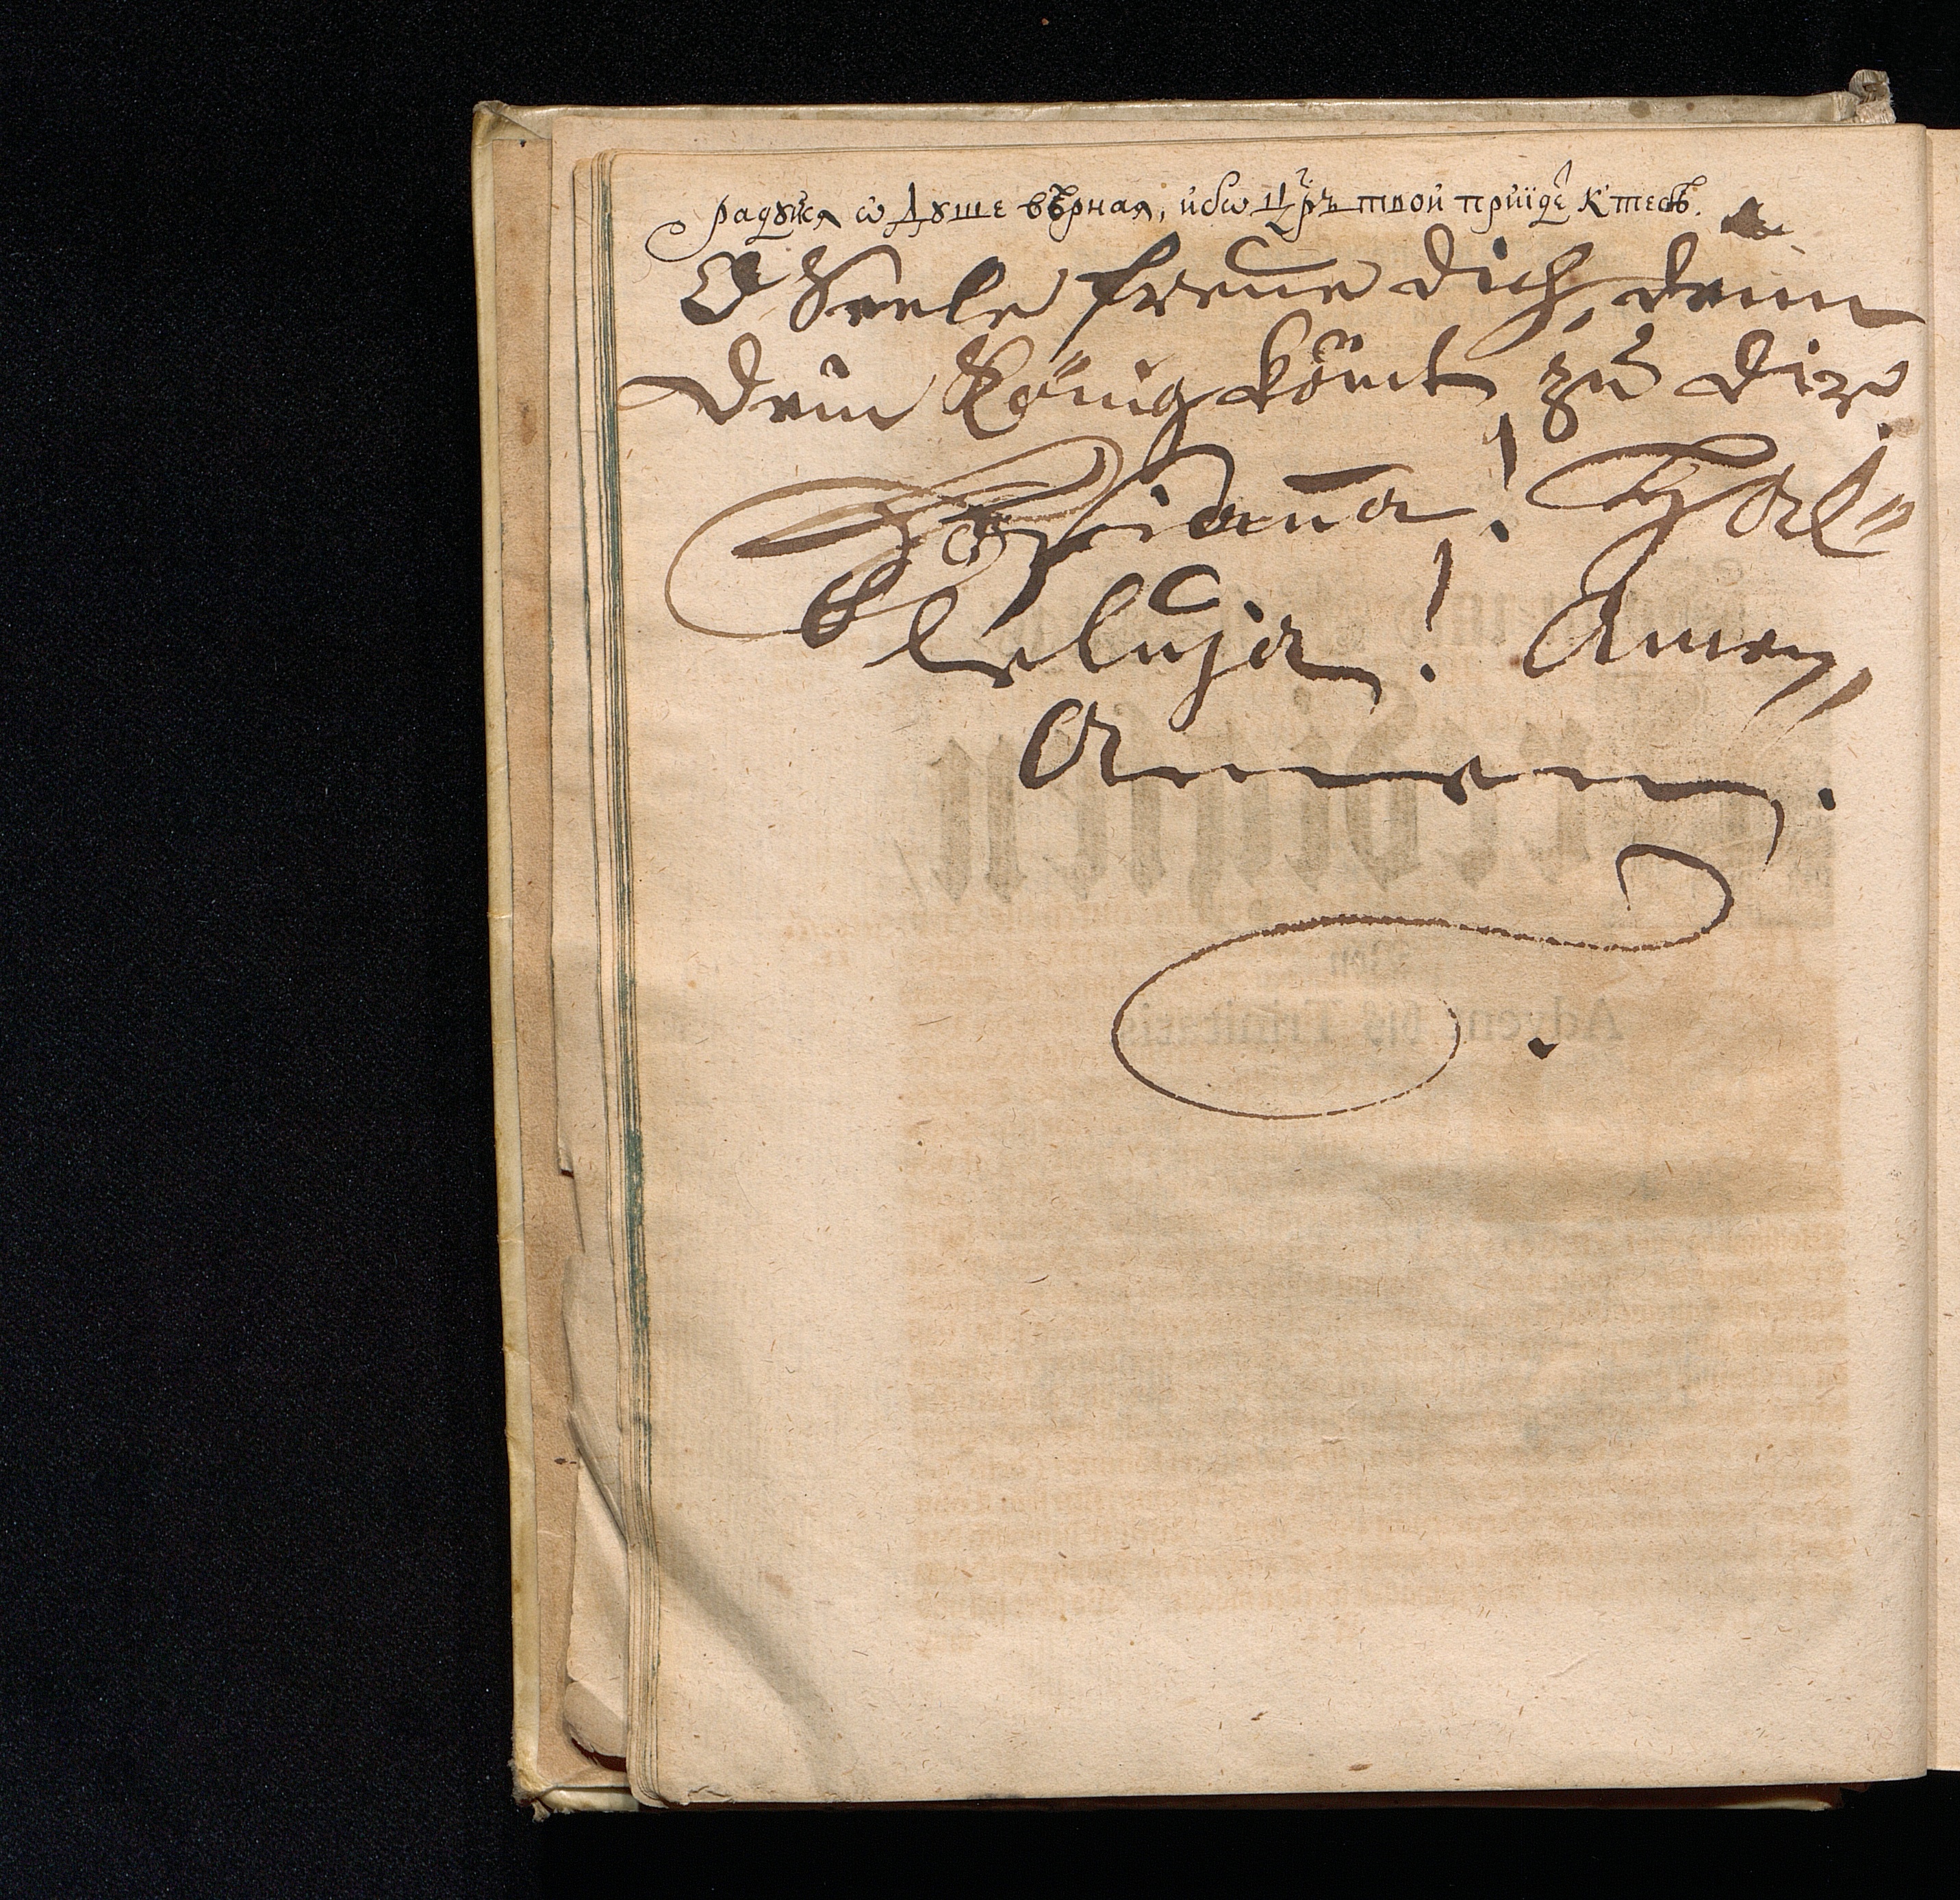 радꙋйсѧ ѡ Дꙋше вѣрнаѧ, ибѡ Цр҃ъ твой прїиде К тебѣ.
O Seele freue dich, denn
dein König kömt zu dir
Hosianna! Hal⸗
leluja! Amen,
Amen.